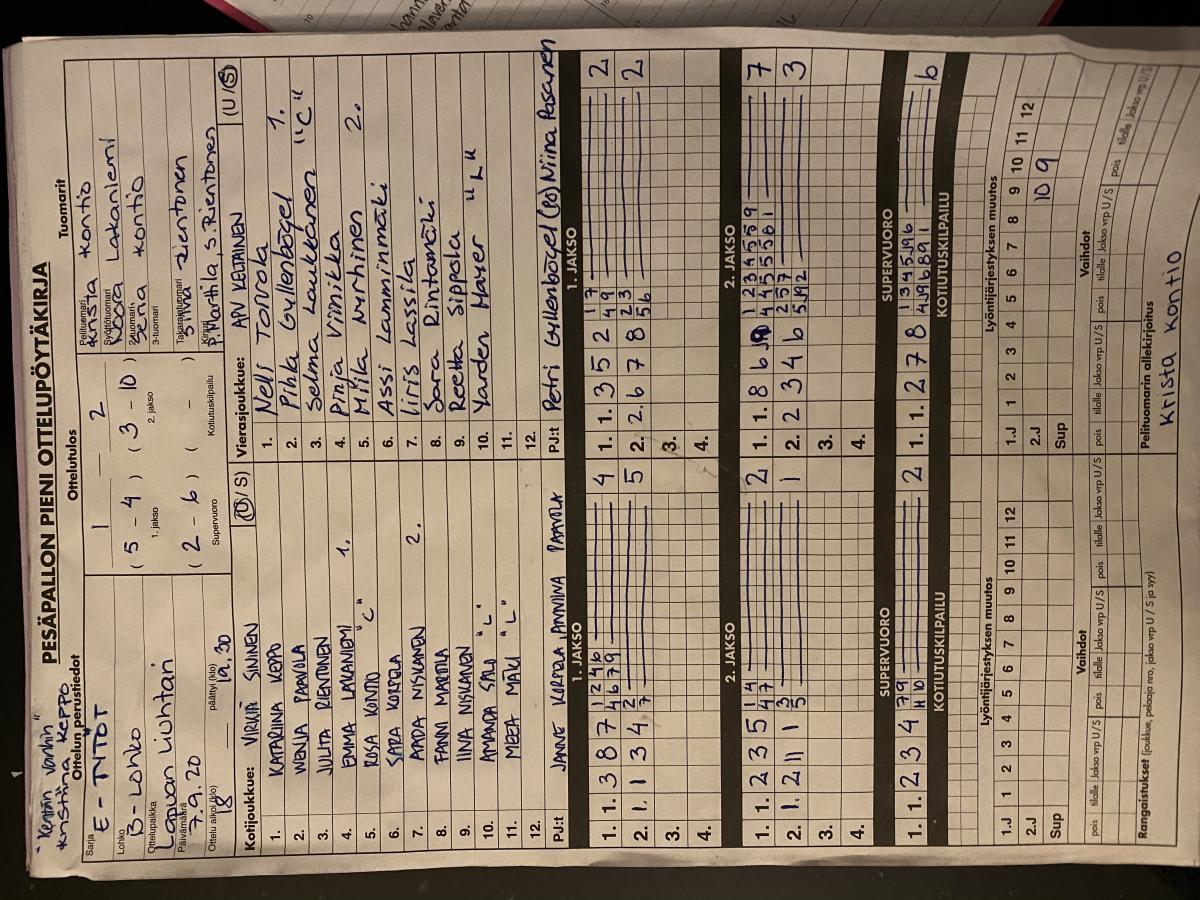 "Kentän vanhin"
Kristiina Keppo
PESÄPALLON PIENI OTTELUPÖYTÄKIRJA
Ottelun perustiedot
Sarja
E - TYTÖT
Lohko
B - Lohko
Ottelupaikka
Lapuan Liuhtari
Päivämäärä
7.9.20
Ottelu alkoi (klo)
18
päättyi (klo)
19.30
Ottelutulos
1 — 2
( 5 - 4 ) ( 3 - 10 )
1. jakso 2. jakso
( 2 - 6 ) ( - )
Supervuoro Kotiutuskilpailu
Tuomarit
Pelituomari
Krista Kontio
Syöttötuomari
Noora Lakaniemi
2-tuomari
Jena Kontio
3-tuomari
Takarajatuomari
Kirjuri
P. Marttila, S. Rientonen
Kotijoukkue: VIRKIÄ SININEN (U / S)
1. KATARIINA KEPPO
2. WENJA PAAVOLA
3. JULITA RIENTONEN
4. EMMA LAKANIEMI 1.
5. ROSA KONTIO "C"
6. SARA KORPELA
7. AADA NISKANEN 2.
8. FANNI MARTTILA
9. IINA NISKANEN
10. AMANDA SALO "L"
11. MEEA MÄKI "L"
12.
PJ:t JANNE KORPELA, ANNIINA PAAVOLA
Vierasjoukkue: APV KELTAINEN (U / S)
1. Nelli Torvola
2. Pihla Gullenbögel 1.
3. Selma Laukkanen "C"
4. Pinja Viinikka
5. Miila Nurhinen 2.
6. Assi Lamminmäki
7. Iiris Lassila
8. Saara Rintamäki
9. Reetta Sippola
10. Yarden Haver "L"
11.
12.
PJ:t Petri Gyllenbögel (po) Niina Pasanen
1. JAKSO
1. 1. 3 8 7 1 2 4 6 4
4 6 7 9
2. 1. 1 3 4 2 5
7
3.
4.
1. JAKSO
1. 1. 3 5 2 1 7 2
4 9
2. 2. 6 7 8 2 3 2
5 6
3.
4.
2. JAKSO
1. 1. 2 3 5 1 4 2
4 7
2. 1. 2 11 1 3 1
5
3.
4.
2. JAKSO
1. 1. 8 6 1 2 3 4 5 5 9 7
4 4 5 5 5 8 1
2. 2 3 4 6 2 5 7 3
3.
4.
SUPERVUORO
1. 1. 2 3 4 7 9 2
11 10
SUPERVUORO
1. 1. 2 7 8 1 3 4 5 9 6 6
KOTIUTUSKILPAILU
KOTIUTUSKILPAILU
Lyöntijärjestyksen muutos
1.J 1 2 3 4 5 6 7 8 9 10 11 12
2.J
Sup
Lyöntijärjestyksen muutos
1.J 1 2 3 4 5 6 7 8 9 10 11 12
2.J 10 9
Sup
Vaihdot
pois tilalle Jakso vrp U / S pois tilalle Jakso vrp U / S pois tilalle Jakso vrp U / S
Vaihdot
pois tilalle Jakso vrp U / S pois tilalle Jakso vrp U / S pois tilalle Jakso vrp U / S
Rangaistukset (joukkue, pelaaja nro, jakso vrp U / S ja syy)
Pelituomarin allekirjoitus
Krista Kontio